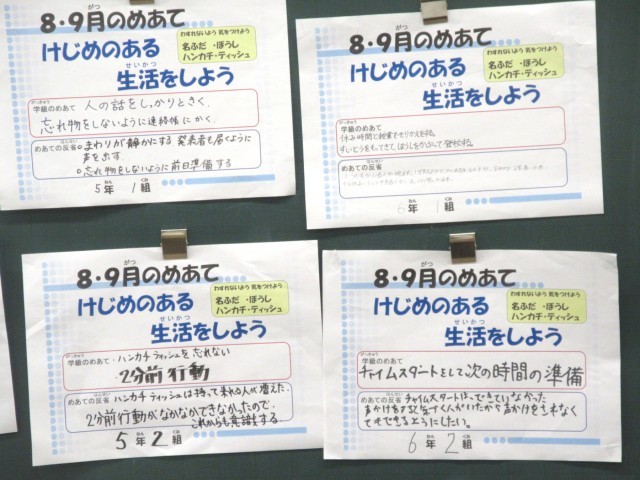 8・9月のめあて
わすれないよう 気をつけよう
名ふだ ・ぼうし
ハンカチ・ティッシュ
けじめのある
生活をしよう
学級のめあて 人の話をしっかりときく
忘れ物をしないように連絡帳にかく
めあての反省 ○まわりが静かにする 発表者も届くように
声を出す
○忘れ物をしないように前日準備する
5年 1組
8・9月のめあて
わすれないよう 気をつけよう
名ふだ ・ぼうし
ハンカチ・ティッシュ
けじめのある
生活をしよう
学級のめあて
休み時間と授業をきりかえをする。
すいとうをもってきて、ぼうしをかぶって登校する。
めあての反省
6年 1組
8・9月のめあて
わすれないよう 気をつけよう
名ふだ ・ぼうし
ハンカチ・ティッシュ
けじめのある
生活をしよう
学級のめあて ハンカチ ティッシュを忘れない
2分前行動
めあての反省 ハンカチ ティッシュは持って来れる人が増えた。
2分前行動がなかなかできなかったので、
これからも意識する
5年 2組
8・9月のめあて
わすれないよう 気をつけよう
名ふだ ・ぼうし
ハンカチ・ティッシュ
けじめのある
生活をしよう
学級のめあて
チャイムスタートをして次の時間の準備
めあての反省 チャイムスタートは、できていなかった
声かけをすると気づく人がいたから声かけをされなく
てもできるようにしたい。
6年 2組